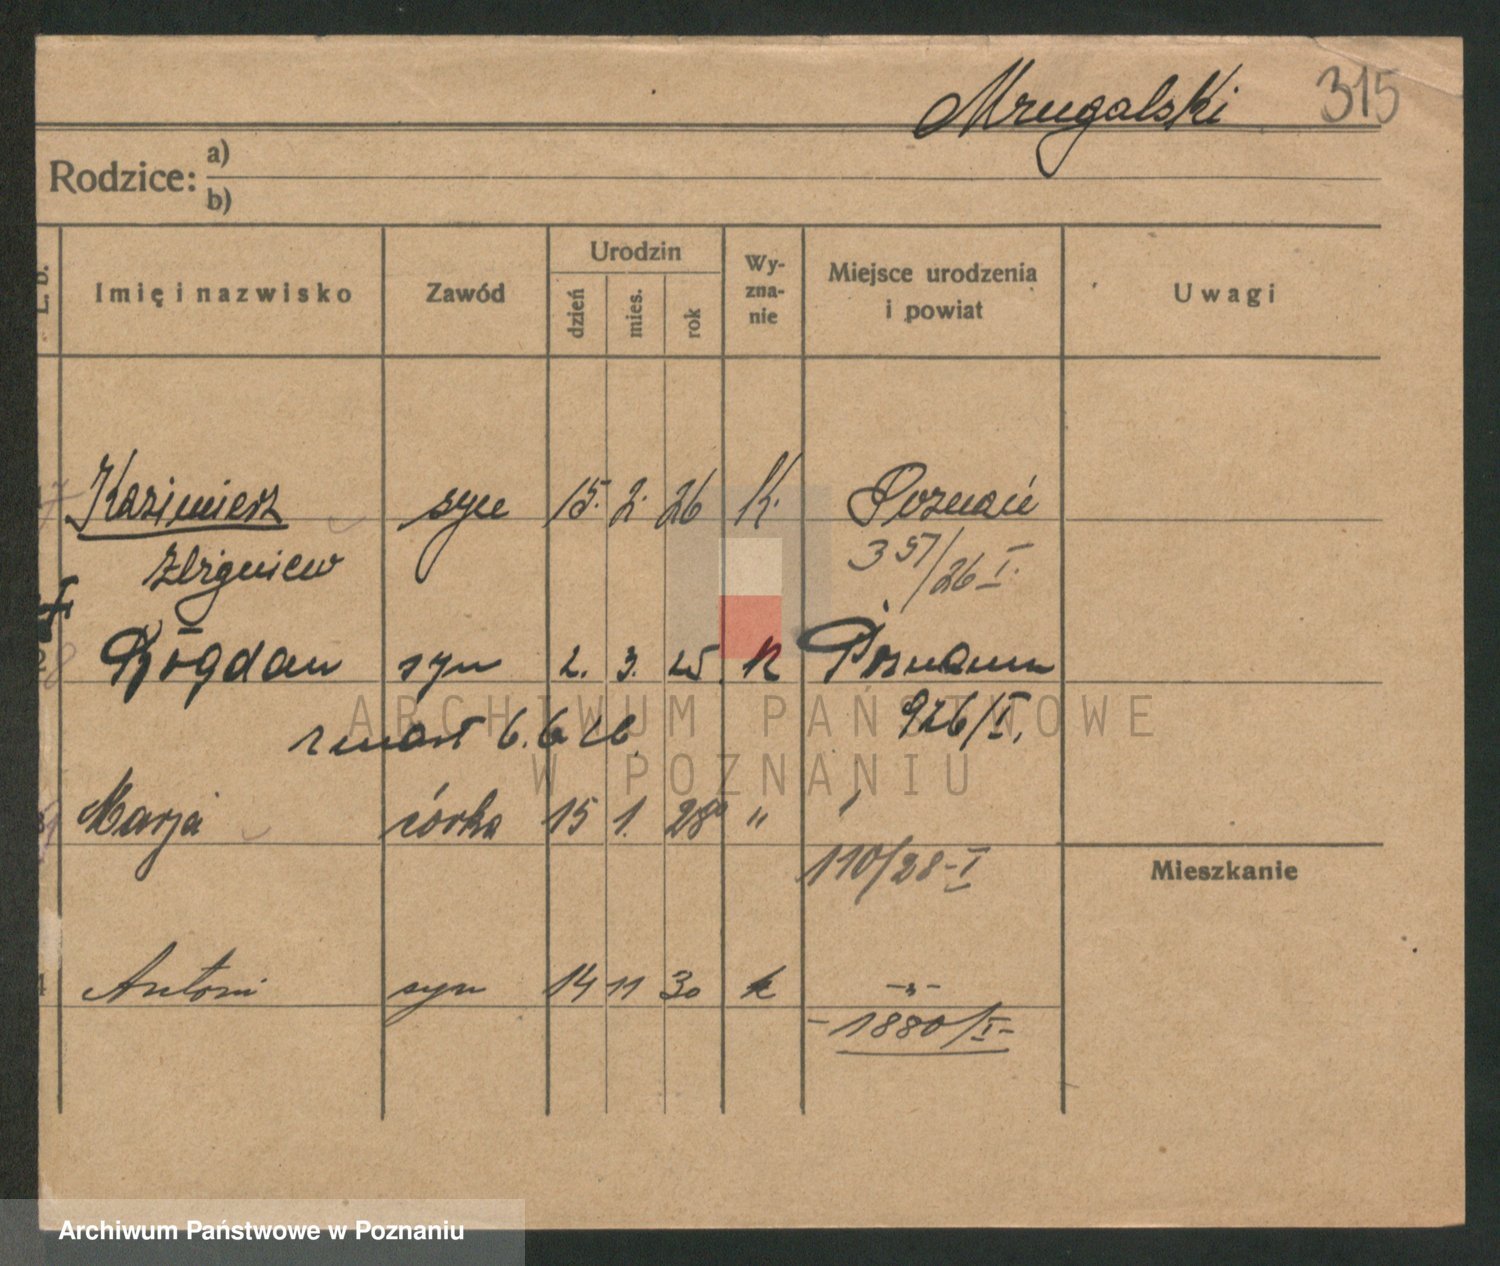 Mrugalski 315
Rodzice: a)
b)
L. b. Imię i nazwisko Zawód Urodzin dzień mies. rok Wy-zna-nie Miejsce urodzenia i powiat Uwagi
Kazimierz syn 15. 2. 26 K. Poznań
Zbigniew 357/26 I.
Bogdan syn 2. 3. 25. K Poznań
zmarł 6.6.26. 926/I.
Marja córka 15 1. 28 "
110/28-I
Mieszkanie
4 Antoni syn 14 11 30 k -"-
-1880/I-
ARCHIWUM PAŃSTWOWE
W POZNANIU
Archiwum Państwowe w Poznaniu